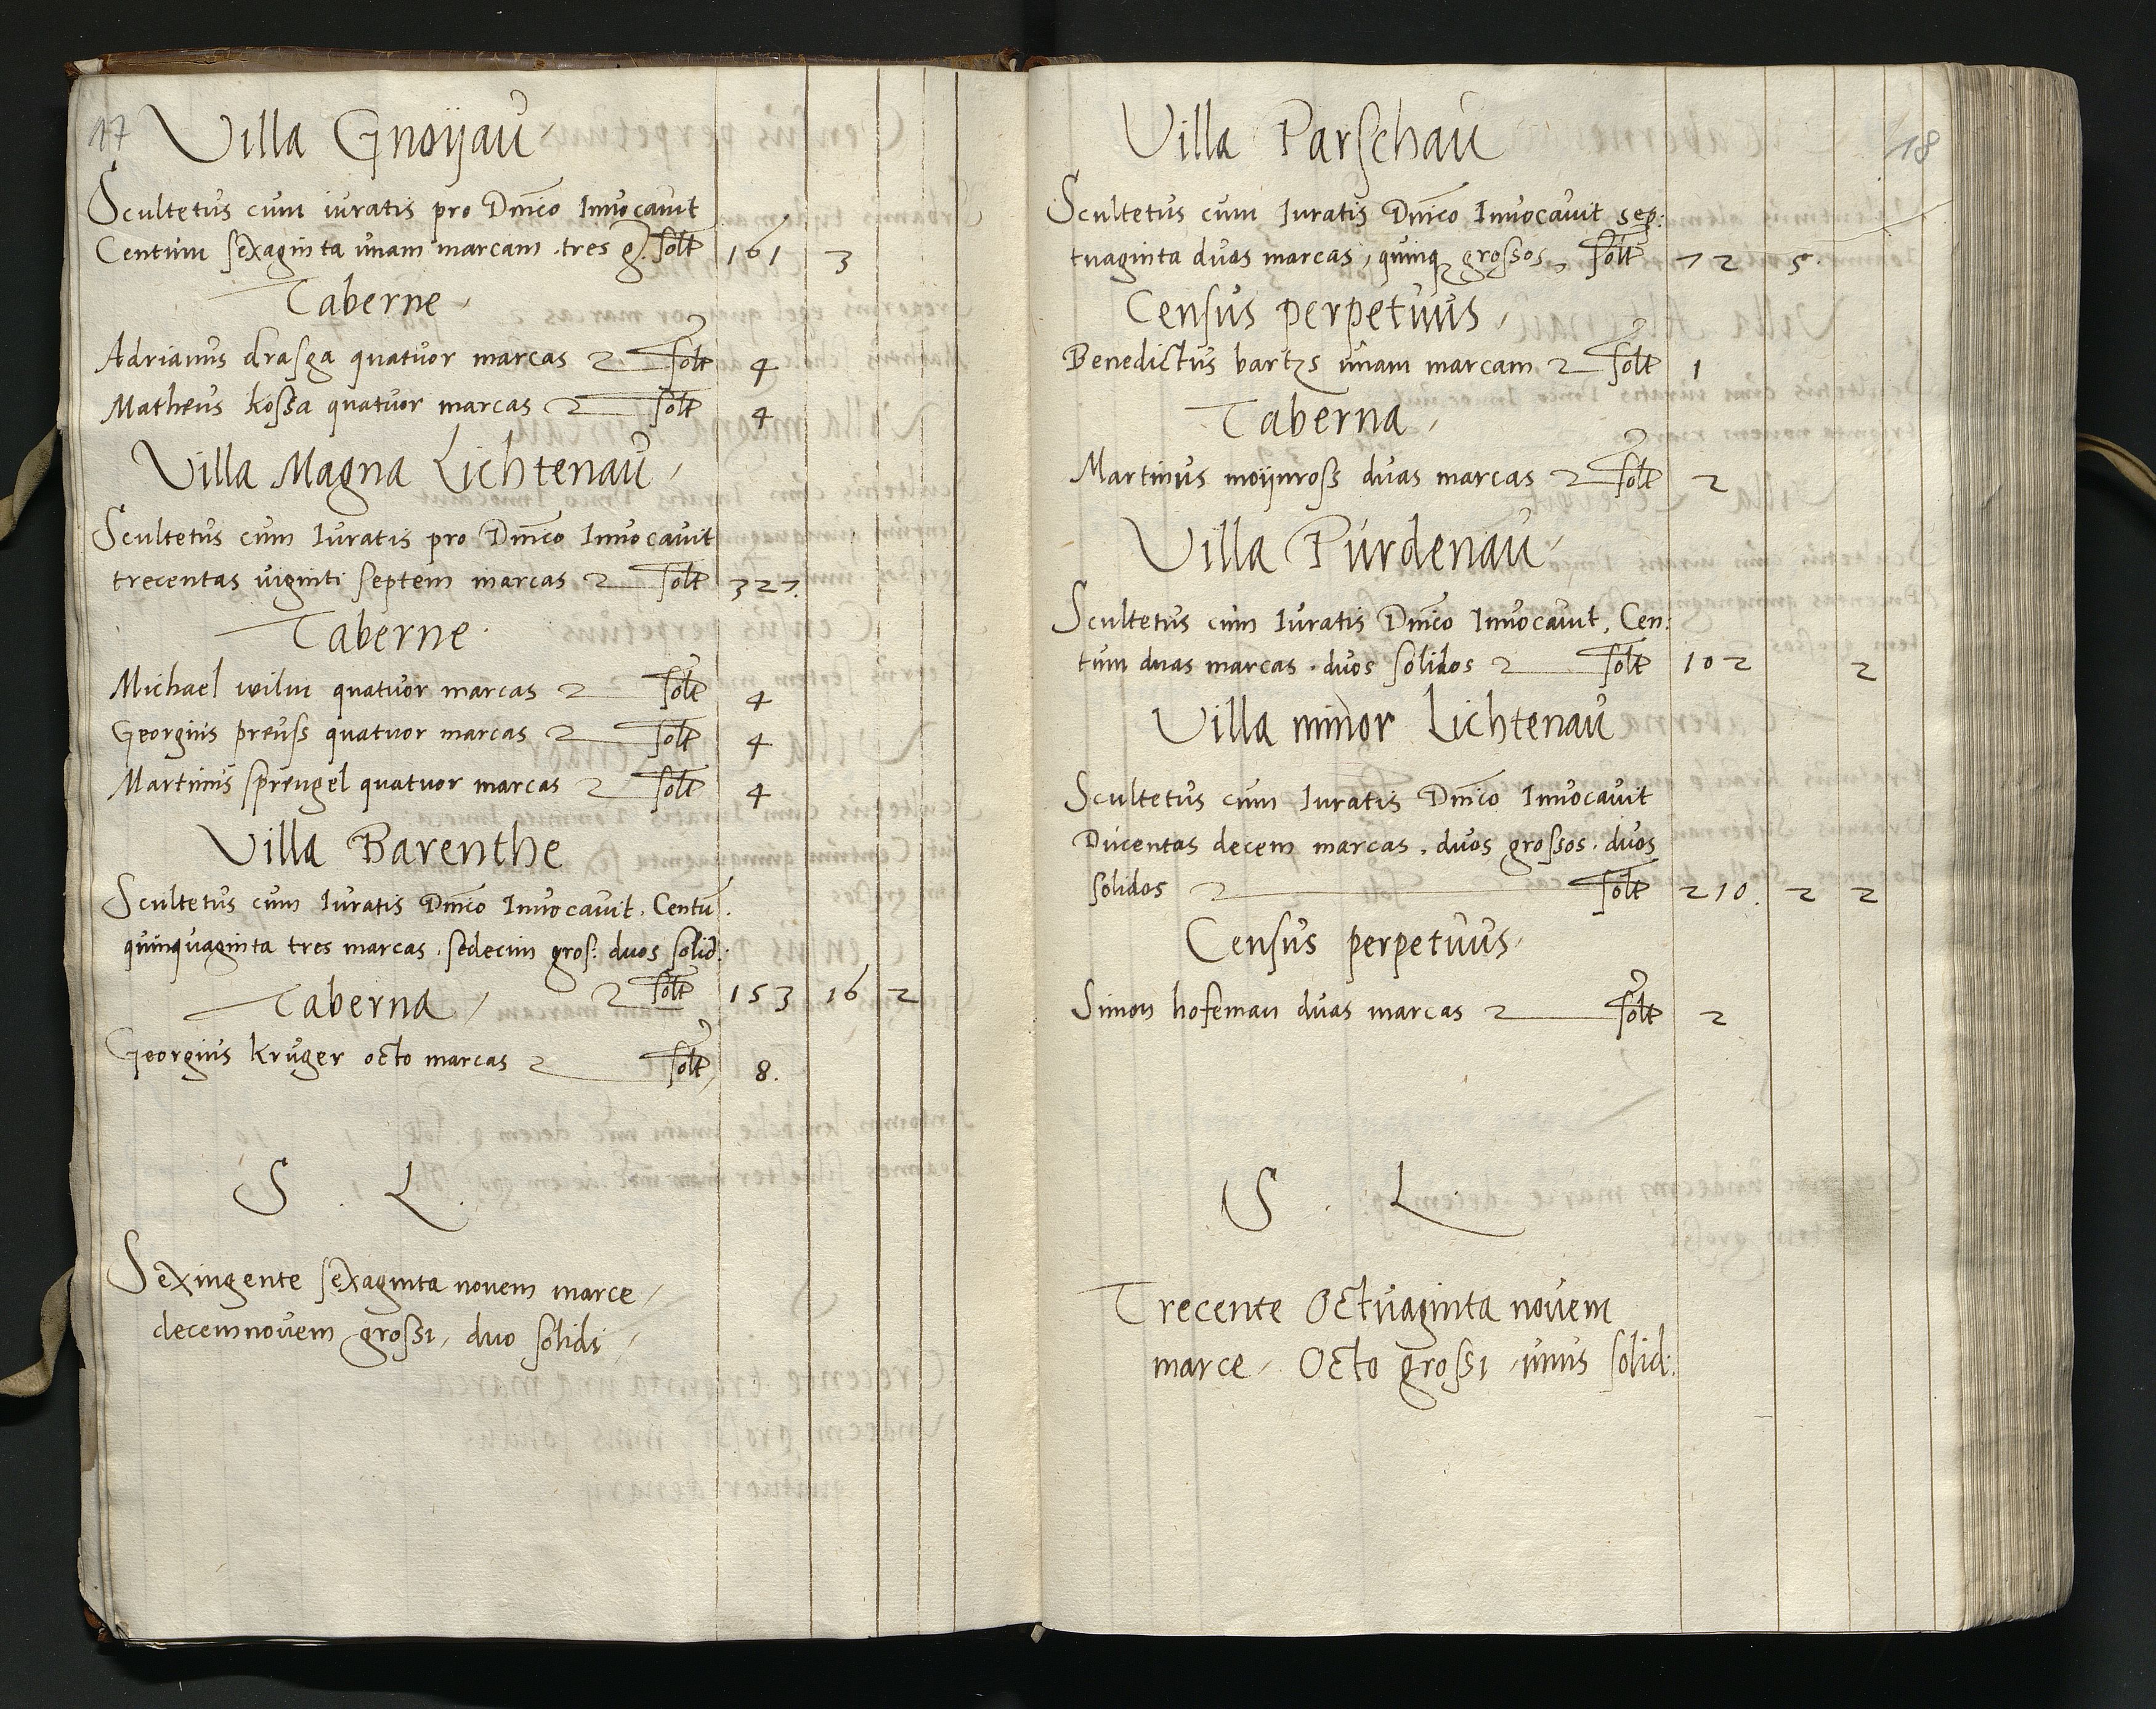 17
Villa Gnoÿau
Scultetus cum iuratis pro Dnīco Inuocauit
Centum sexaginta unam marcam . tres g. solt 161 3
Taberne
Adrianus drasga quatuor marcas solt 4
Matheus kossa quatuor marcas solt 4
Villa Magna Lichtenau
Scultetus cum Iuratis pro Dnīco Inuocauit
trecentas uiginti septem marcas solt 327.
Taberne
Michael wilm quatuor marcas solt 4
Georgius preuss quatuor marcas solt 4
Martinus sprengel quatuor marcas solt 4
Villa Barenthe
Scultetus cum Iuratis Dnīco Inuocauit. Centū.
quinquaginta tres marcas . sedecim gros: duos solid:
Taberna solt 153 16 2
Georgius kruger octo marcas solt 8.
S . L .
Sexingente sexaginta nouem marce
decemnouem grossi, duo solidi
18
Villa Parschau
Scultetus cum Iuratis Dnīco Inuocauit sep:
tuaginta duas marcas, quinq grossos solt 72 5.
Census perpetuus
Benedictus bartzs unam marcam solt 1
Taberna
Martinus moÿnross duas marcas solt 2
Villa Purdenau
Scultetus cum Iuratis Dnīco Inuocauit, Cen:
tum duas marcas . duos solidos solt 102 2
Villa minor Lichtenau
Scultetus cum Iuratis Dnīco Inuocauit
Ducentas decem marcas . duos grossos . duos
solidos solt 210. 2 2
Census perpetuus
Simon hofeman duas marcas solt 2
S . L
Trecente Octuaginta nouem
marce Octo grossi unus solid: